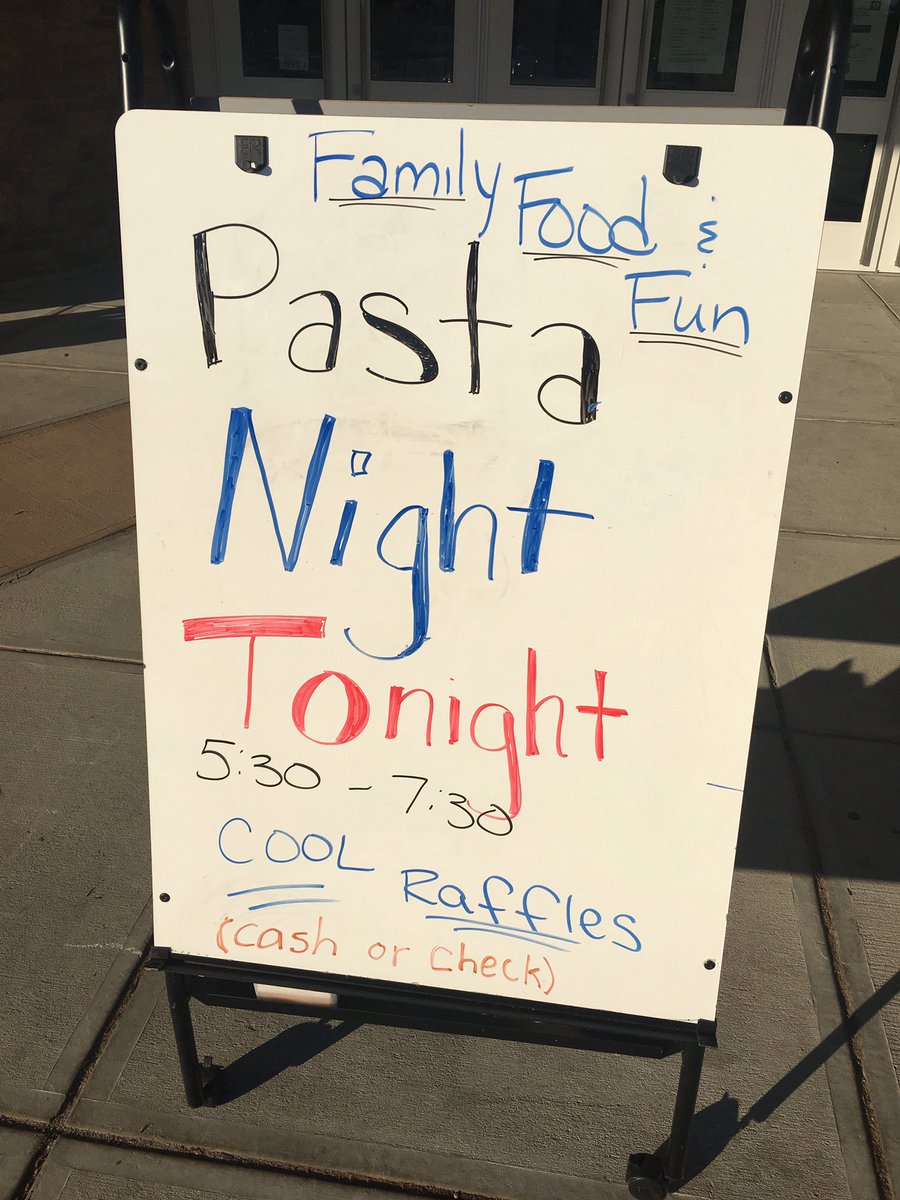 Family Food &
Fun
Pasta
Night
Tonight
5:30 - 7:30
COOL Raffles
(cash or check)